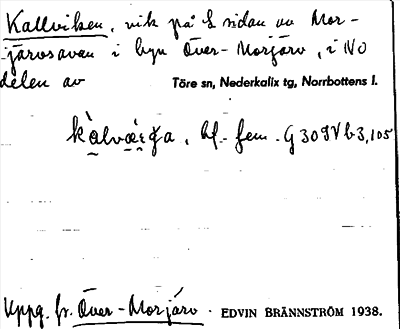 Kallviken, vik på S sidan av Mor-
järvsavan i byn Över-Morjärv, i NO
delen av Töre sn, Nederkalix tg, Norrbottens l.
bf. fem. G309Vb3,105
Uppg. fr. Över-Morjärv. EDVIN BRÄNNSTRÖM 1938.